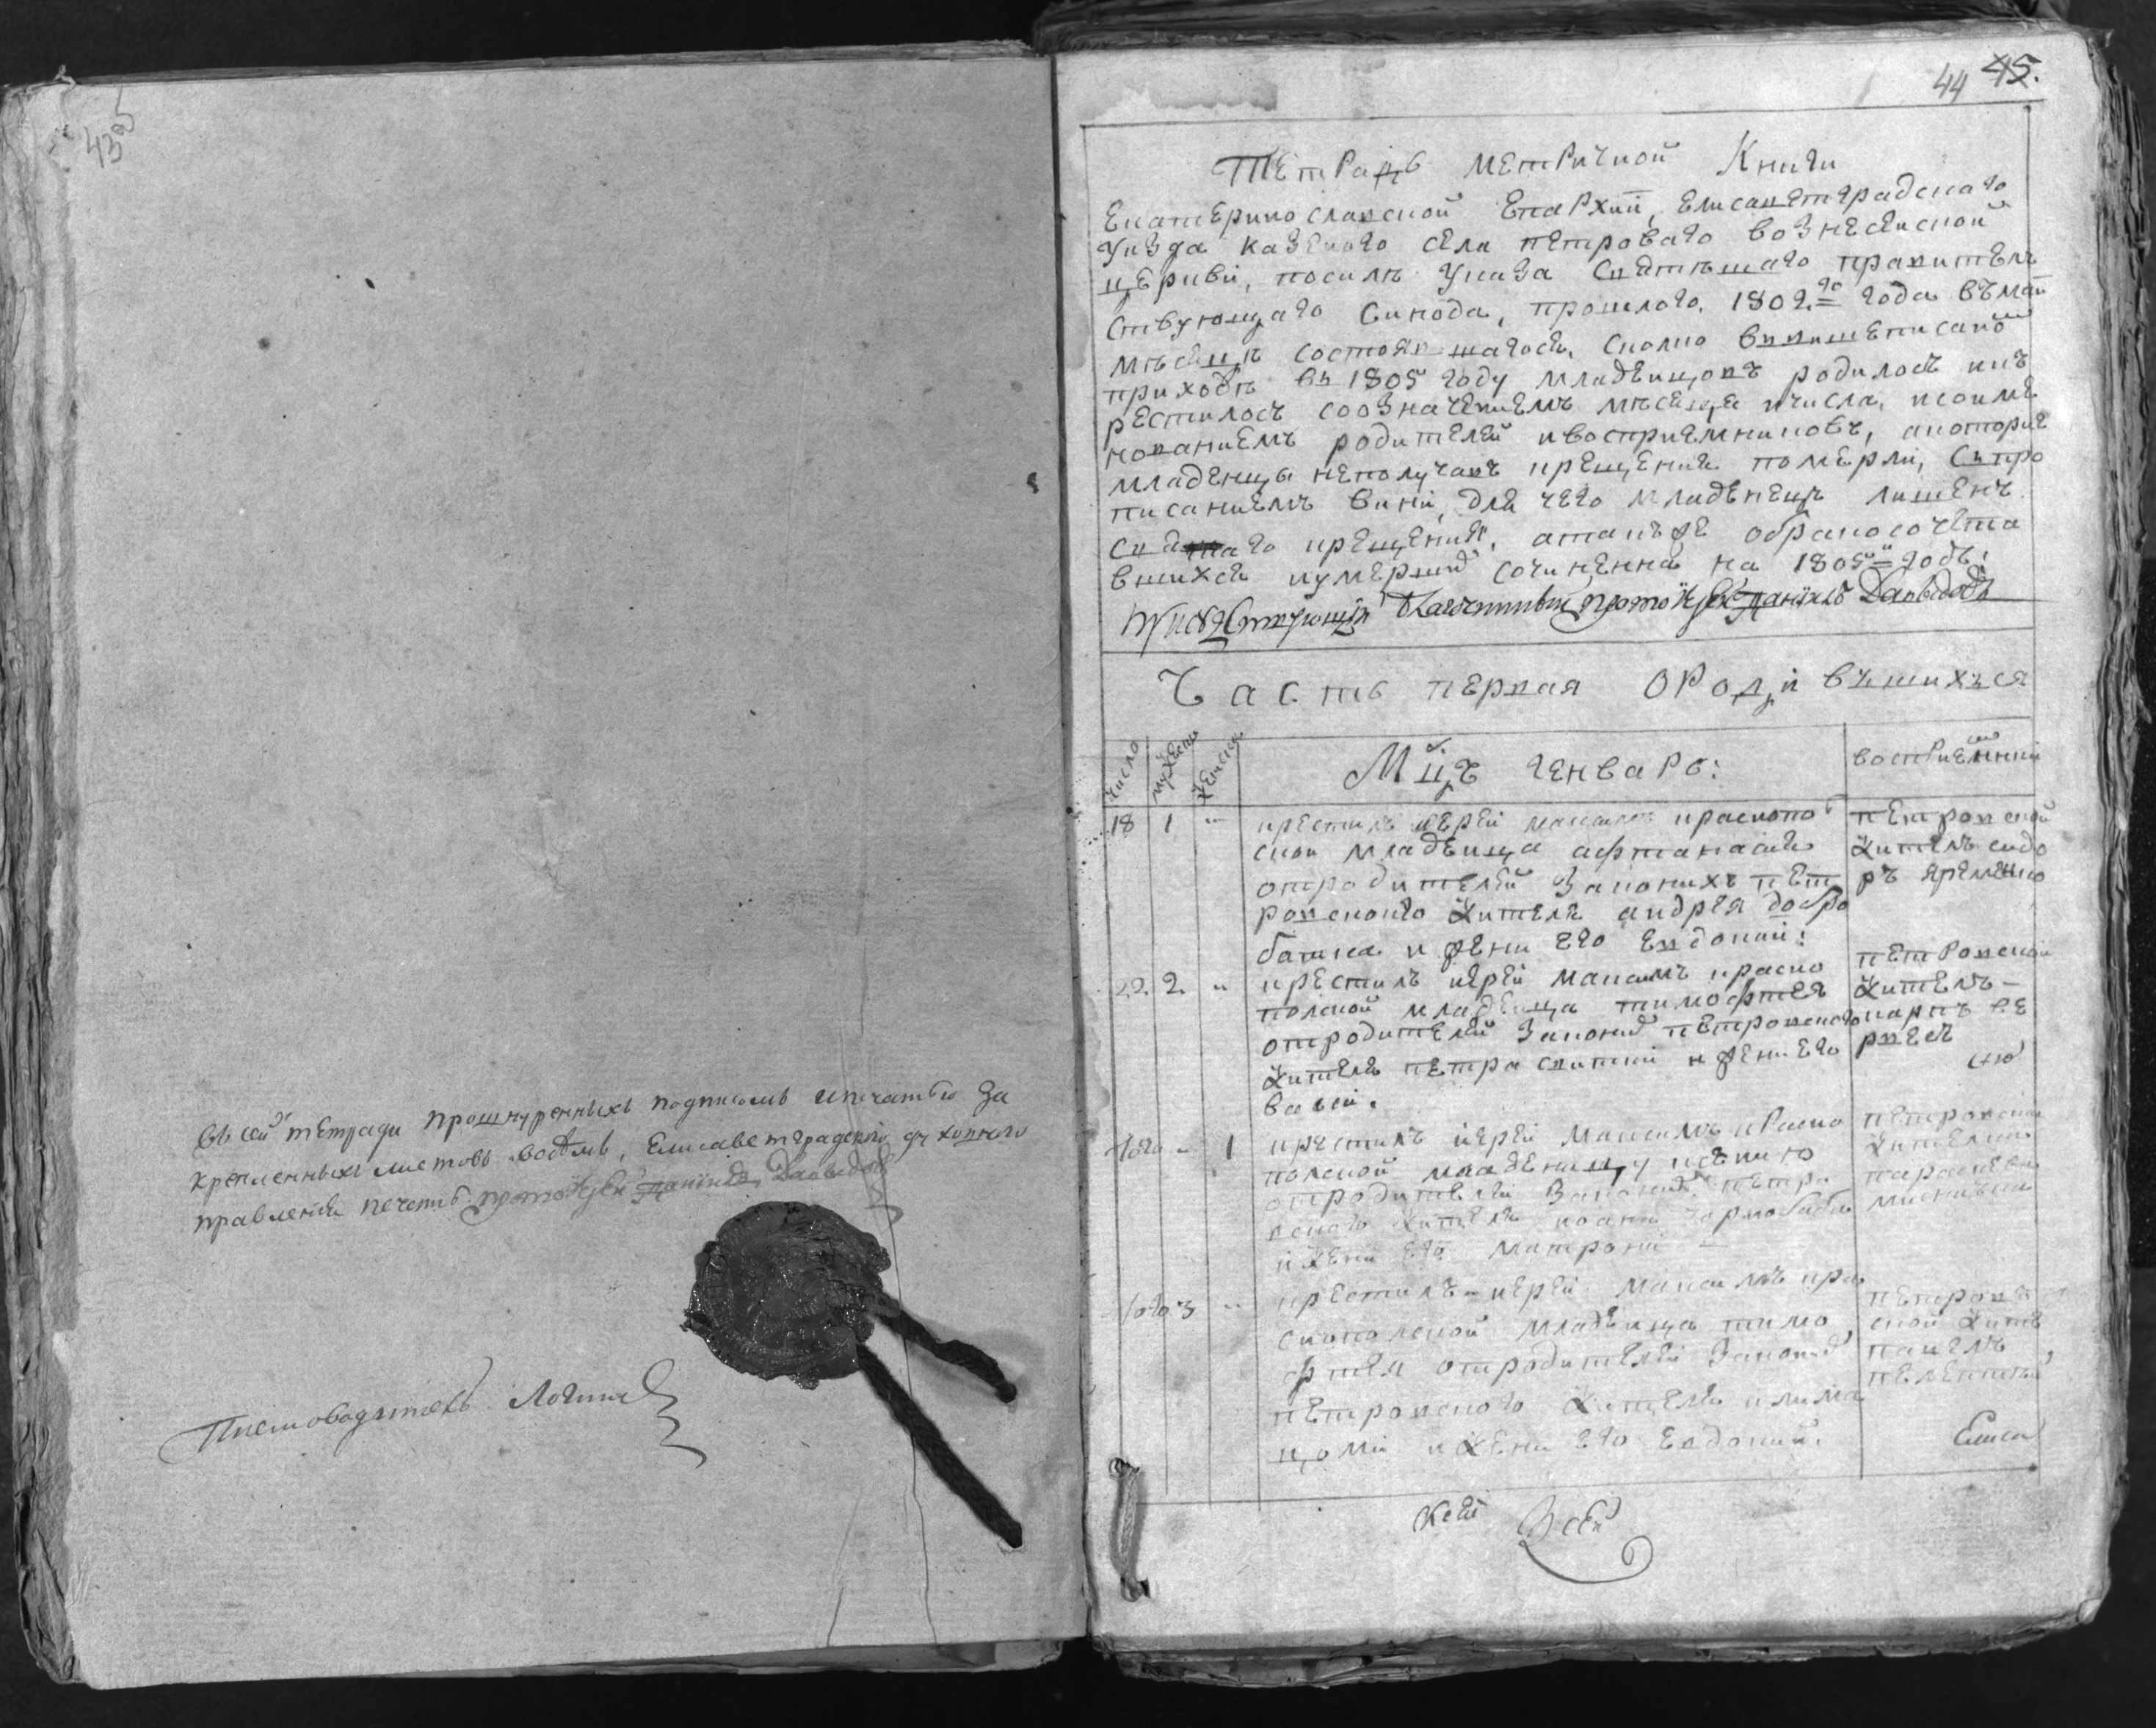 43 об
Въ сей тетради прошнуренныхъ подписомъ ипечатью За
крепленныхъ листовъ восемь, Елисаветградского духовного
правленія печать протоіерей Даніилъ Давидовъ
Писмоводитель Логинъ
44 45.
Тетрадь метричной Книги
Екатеринославской Епархіи, Елисаветградскаго
уизда казеного села петроваго вознесенской
церкви, посилѣ указа Святѣшаго правитель
ствующаго Синода, прошлого, 1802.го года въмаи
мѣсяцѣ состоявшагося, сколко ввишеписано
приходѣ въ 1805 году младенцовъ родилось ик
рестилось созначениемъ мѣсяца ичисла, исоиме
нованиемъ родителей ивосприемниковъ, икоторие
младенцы неполучавъ крещения померли, Съпро
писаниемъ вини, для чего младенецъ лишенъ
Свтаго крещения, атакъже обракосочета
вшихся иумерших сочиненна на 1805й годъ:
присудствующій благочинный протоіерей Даніилъ Давидовъ
Часть первая Ороди вьшихъся
число
мужеска
женска
Мцъ генварь:
восприемники
18 1 "
крестилъ иерей максимъ краснопо
скои младенца афтанасия
отродителей Законихъ пет
ровского жителя андрея добро
батка и жени его Евдокии:
петровской
житель сидо
ръ яременко
22. 2. "
крестилъ иерей максимъ красно
полской младенца тимофтея
отродителей Законих петровского
жителя петра свитки и жени его
васси.
петровской
житель-
карпъ ве
рвес
ско
того - 1
крестилъ иерей максимъ красно
полской младеницу ксению
отродителей Законих петро
вского жителя иоана
и жени его матрони -
петровская
жителка
параскева
того 3 "
крестилъ иерей максимъ кра
снополской младенца тимо
фтея отродителей Законих
петровского жителя клима
цоми и жени его Евдокии.
петров
ской жите
павелъ
Елиса